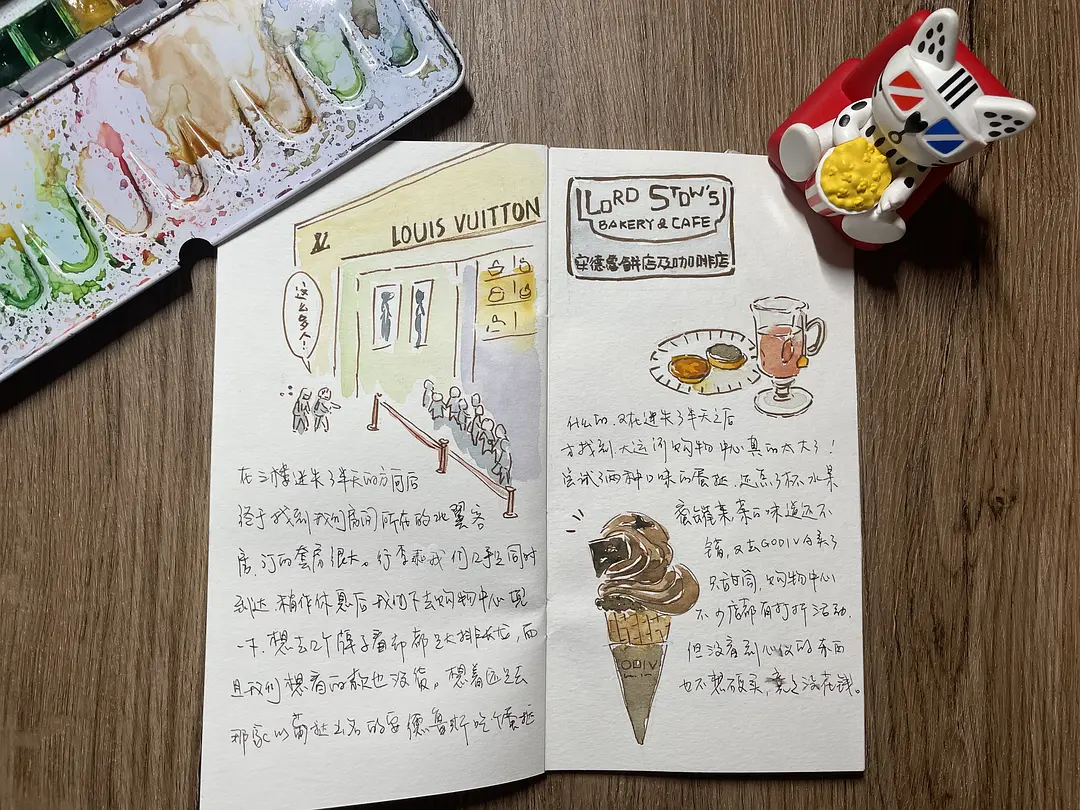 LOUIS VUITTON
这么多人!
在三楼迷失了半天的方向后
终于找到我们房间所在的北翼客
房,订的套房很大。行李和我们几乎是同时
到达,稍作休息后我们下去购物中心逛
一下,想去几个牌子看却都是大排长龙,而
且我们想看的款也没货。想着还是去
那家以葡挞出名的安德鲁斯吃个蛋挞
LORD STOW'S
BAKERY & CAFE
安德魯餅店及咖啡店
什么的,又在迷失了半天之后
才找到,大运河购物中心真的太大了!
尝试了两种口味的蛋挞,还点了杯水果
蜜罐果茶口味道还不
错,又去GODIVA买了
只甜筒,购物中心
不少店都有打折活动,
但没看到心仪的东西
也不想硬买,竟是没花钱。
GODIV